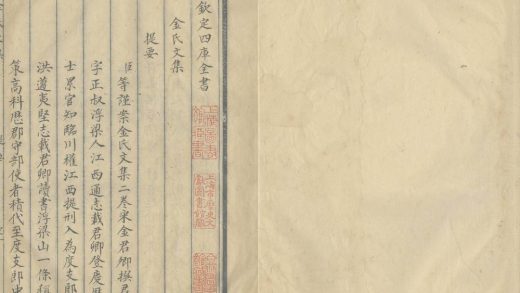 欽定四庫全書
金氏文集
提要
臣等謹案金氏文集二卷宋金君卿撰君
字正叔浮梁人江西通志載君卿登慶
士累官知臨川權江西提刑入為度支郎
洪邁夷堅志載君卿讀書浮梁山一條稱
策高科歷郡守部使者積代至度支郎中